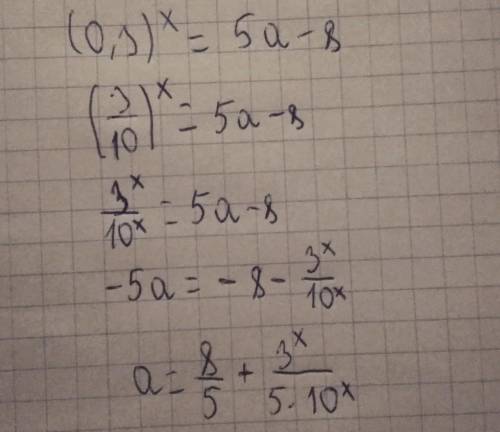 (0,3)^x = 5a - 8
(3/10)^x = 5a - 8
3^x/10^x = 5a - 8
-5a = -8 - 3^x/10^x
a = 8/5 + 3^x/(5·10^x)